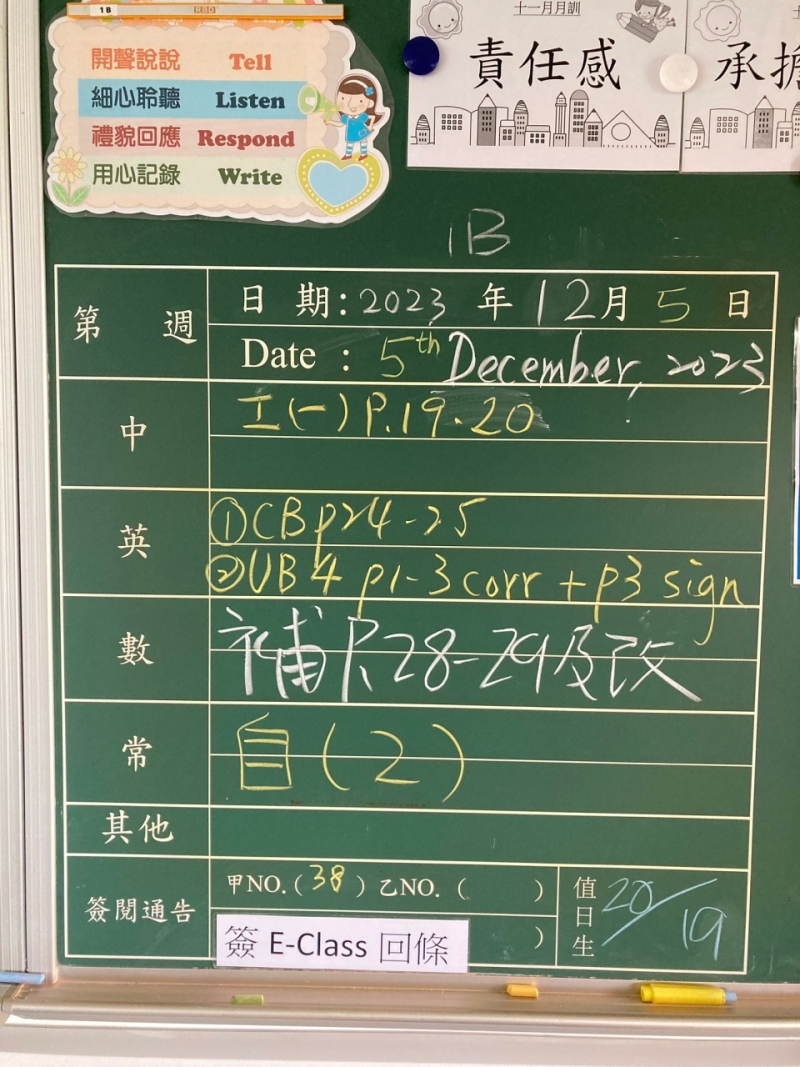 1B
RBD
開聲說說 Tell
細心聆聽 Listen
禮貌回應 Respond
用心記錄 Write
十一月月訓
責任感
承擔
1B
第 週
日 期：2023 年 12月 5 日
Date : 5th December, 2023
中
工(一) P.19.20
英
①CB p24-25
②UB4 p1-3 corr + p3 sign
數
補P.28-29及改
常
自(2)
其他
簽閱通告
甲NO.(38) 乙NO.( )
)
簽 E-Class 回條
值日生
20/19